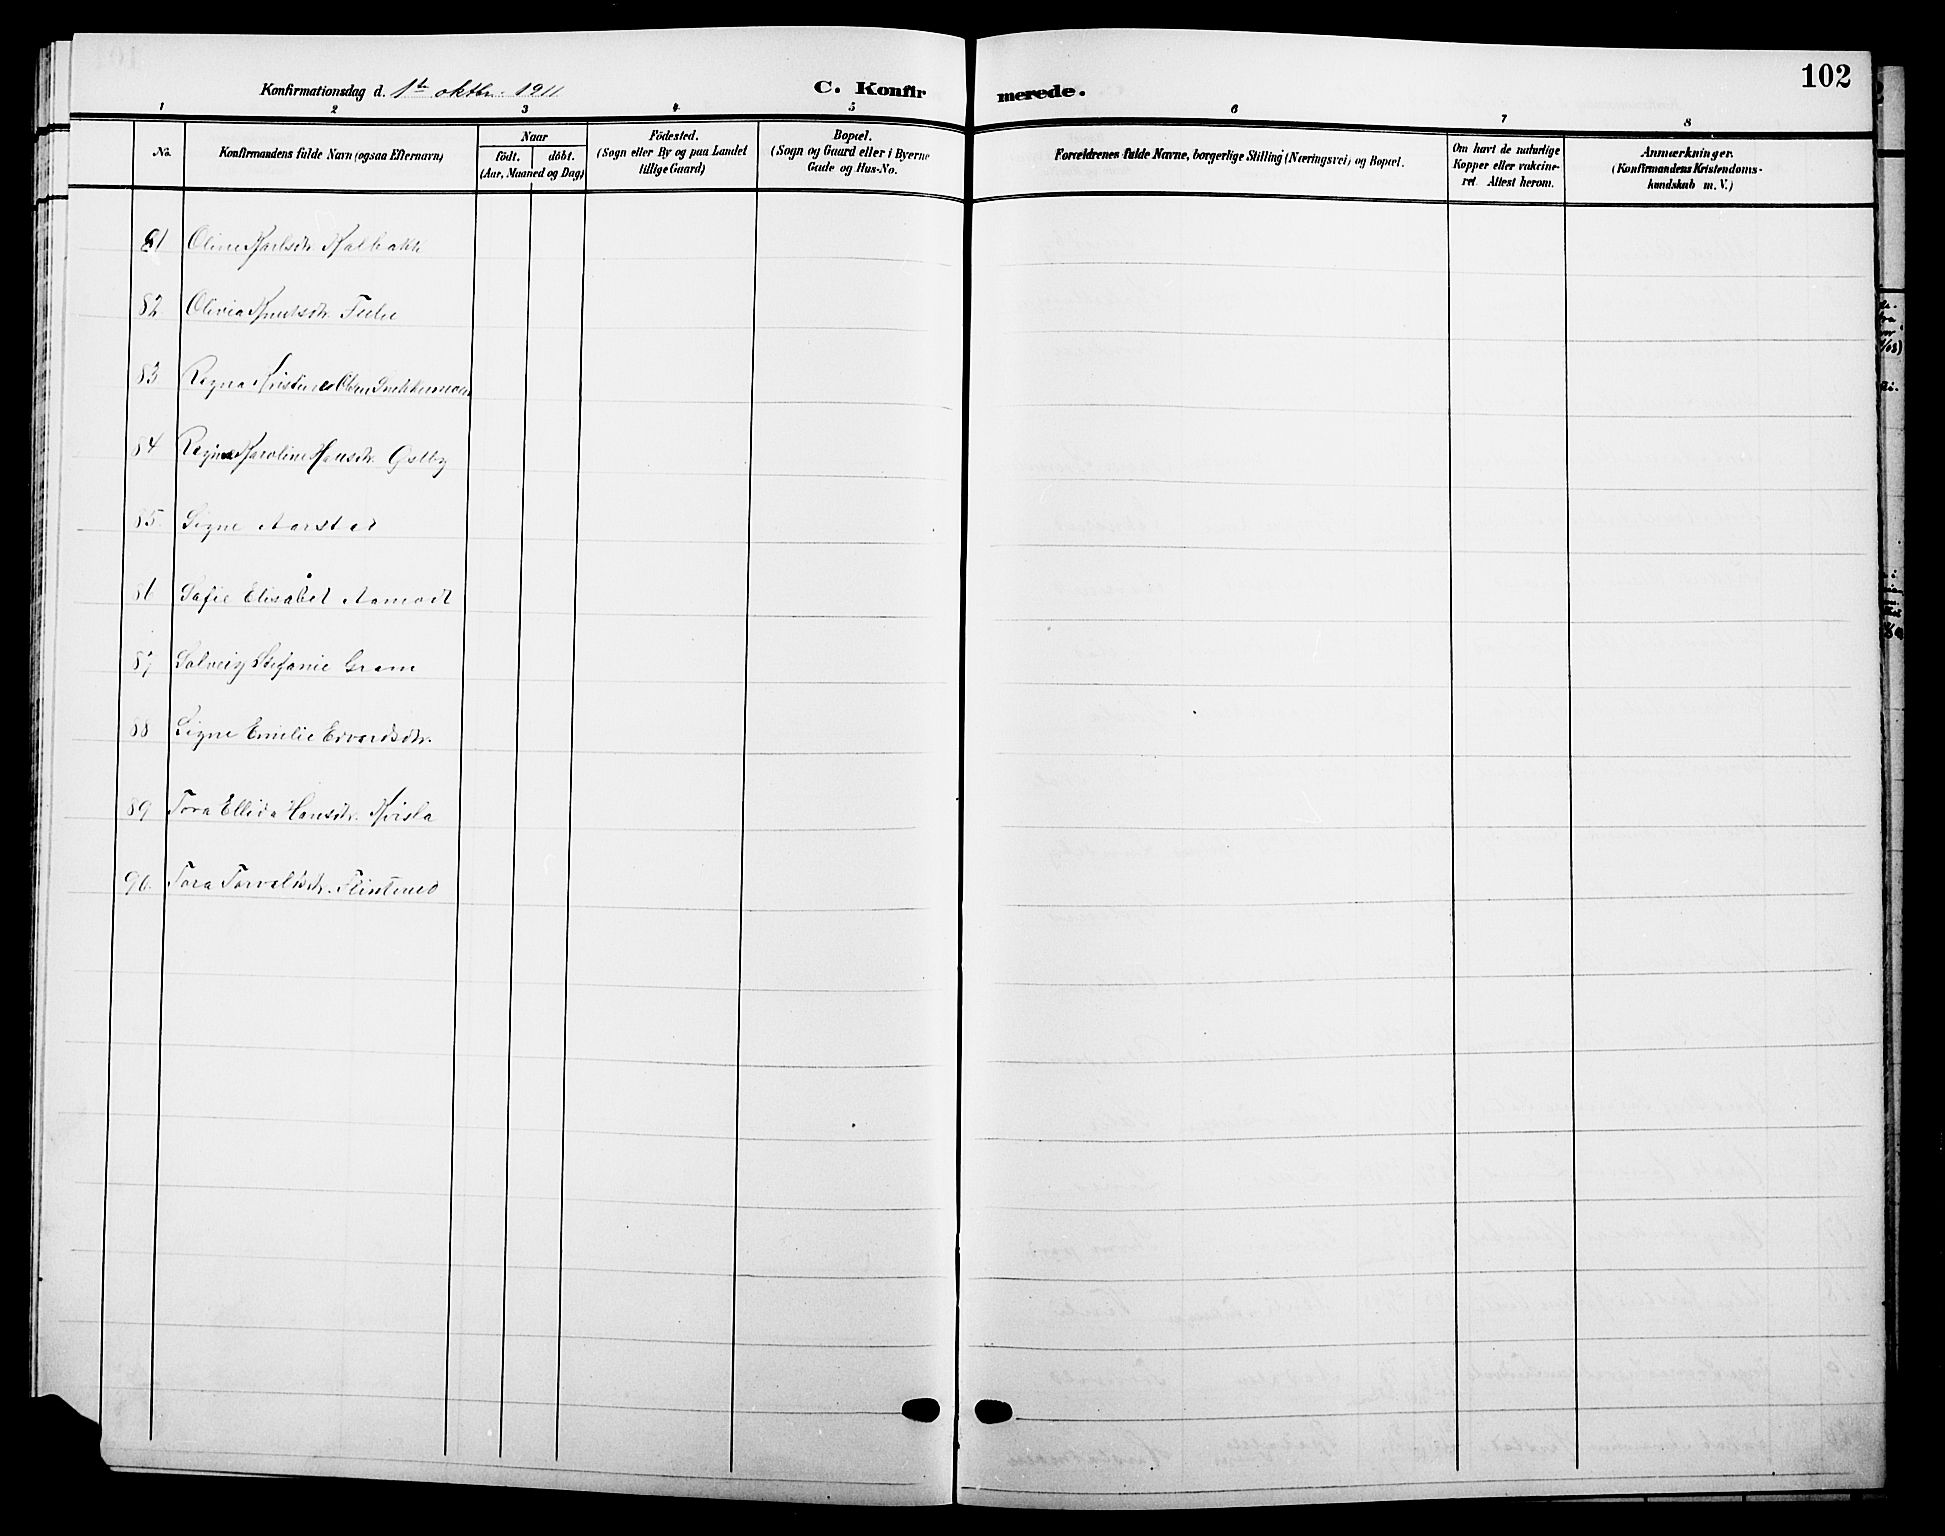 102
Konfirmationsdag d. 1te oktbr. 1911
C. Konfirmerede.
1 2 3 4 5 6 7 8
No.
Konfirmandens fulde Navn (ogsaa Efternavn)
Naar
födt. döbt.
(Aar, Maaned og Dag)
Födested.
(Sogn eller By og paa Landet
tillige Gaard)
Bopæl.
(Sogn og Gaard eller i Byerne
Gade og Hus-No.
Forældrenes fulde Navne, borgerlige Stilling (Næringsvei) og Bopæl.
Om havt de naturlige
Kopper eller vakcine-
ret. Attest herom.
Anmærkninger.
(Konfirmandens Kristendoms-
kundskab m. V.)
81 Oline Karlsdtr. Kalbakk
82 Olivia Knutsdtr.
83 Ragna Kristine Olsen
84 Karoline Hansdtr. Østby
85. Signe Aarstad
86 Safie Elisabet Aamodt
87 Solveig Stefanie Gram
88 Signe Emilie Edvardsdtr.
89 Tora Ellida Hansdtr. Kvisla
90. Tora Torvalsdtr. Flintmed